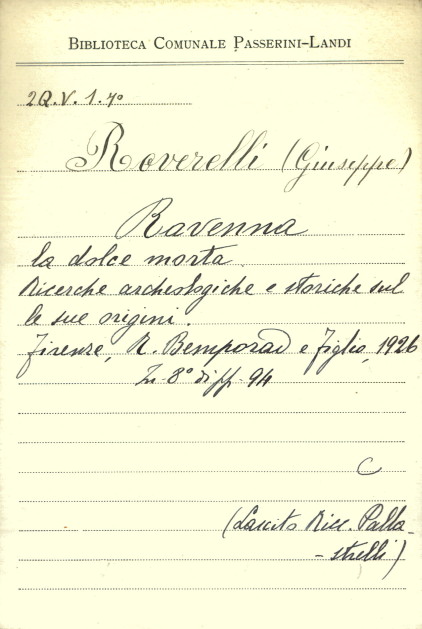 BIBLIOTECA COMUNALE PASSERINI-LANDI
2Q.V.1.4º
Roverelli (Giuseppe)
Ravenna
la dolce morta
Ricerche archeologiche e storiche sul
le sue origini.
Firenze, R. Bemporad e Figlio, 1926
In-8º di ff. 94
C
(Lascito Ricc. Palla-
-strelli)